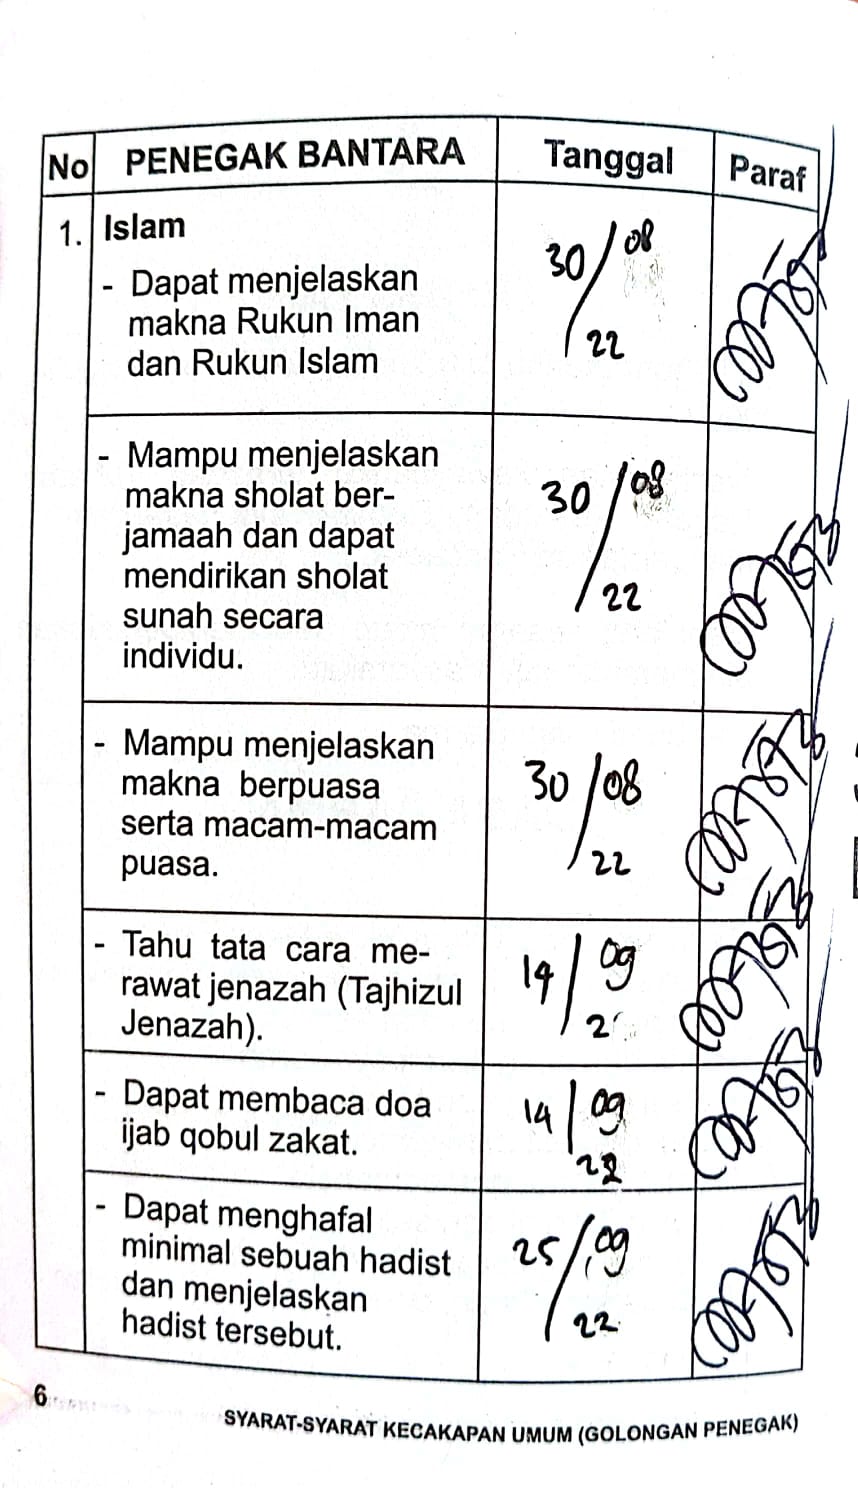 No PENEGAK BANTARA Tanggal Paraf
1. Islam
- Dapat menjelaskan
makna Rukun Iman
dan Rukun Islam
30/08
22
- Mampu menjelaskan
makna sholat ber-
jamaah dan dapat
mendirikan sholat
sunah secara
individu.
30/08
22
- Mampu menjelaskan
makna berpuasa
serta macam-macam
puasa.
30/08
22
- Tahu tata cara me-
rawat jenazah (Tajhizul
Jenazah).
14/09
- Dapat membaca doa
ijab qobul zakat.
14/09
22
- Dapat menghafal
minimal sebuah hadist
dan menjelaskan
hadist tersebut.
25/09
22
6
SYARAT-SYARAT KECAKAPAN UMUM (GOLONGAN PENEGAK)